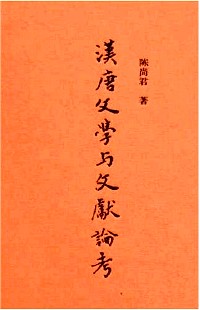 漢唐文學与文獻論考
陈尚君 著